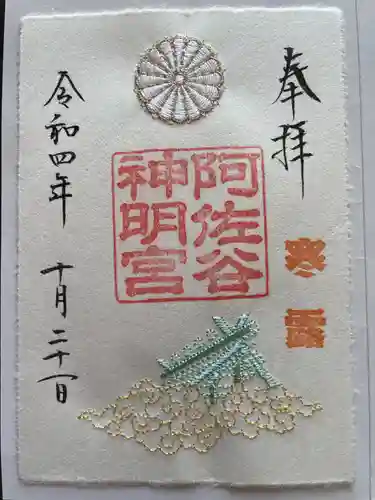 奉拝
寒露
阿佐谷
神明宮
令和四年
十月二十一日